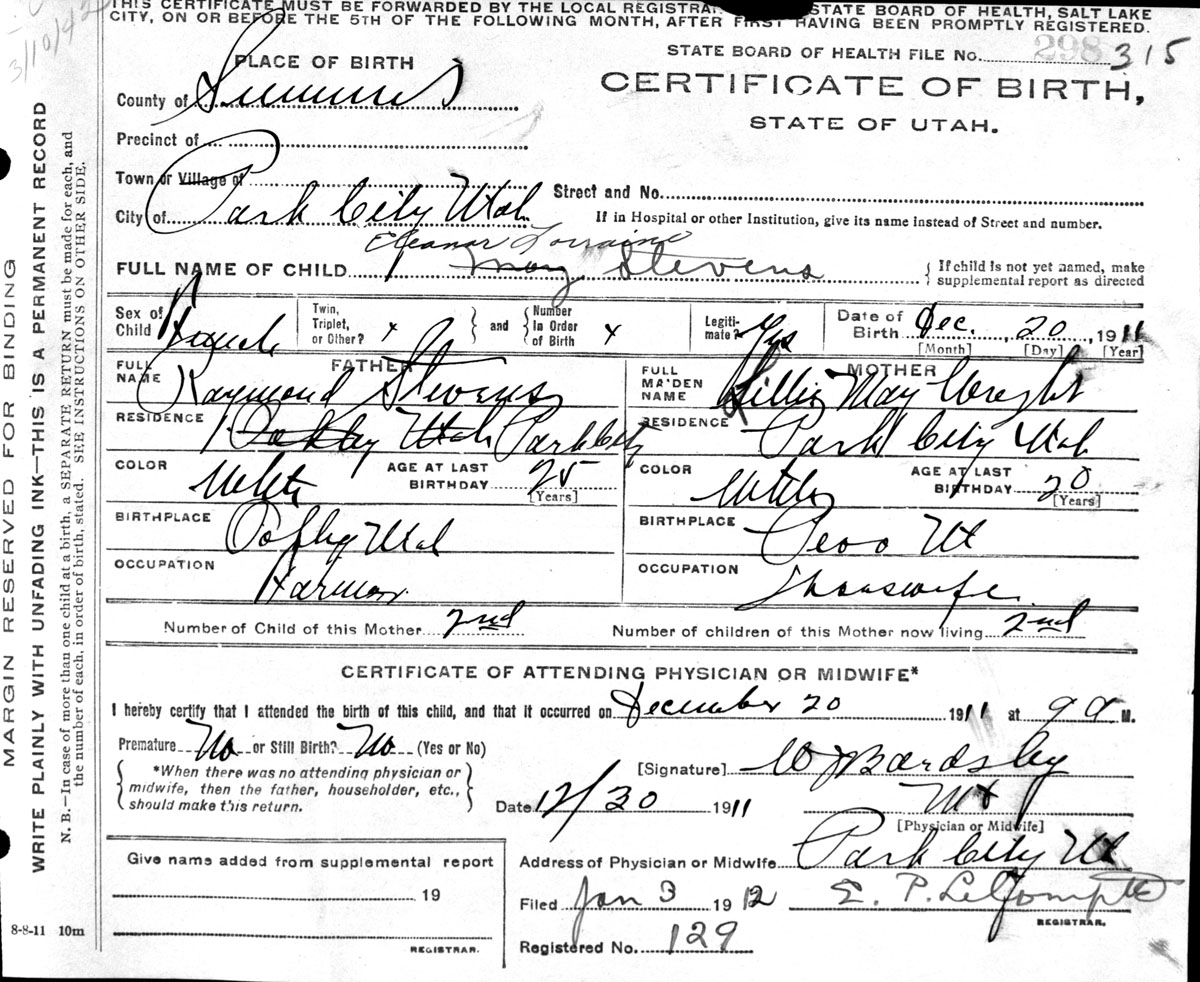 THIS CERTIFICATE MUST BE FORWARDED BY THE LOCAL REGISTRAR STATE BOARD OF HEALTH, SALT LAKE
CITY, ON OR BEFORE THE 5TH OF THE FOLLOWING MONTH, AFTER FIRST HAVING BEEN PROMPTLY REGISTERED.
3/10/42
STATE BOARD OF HEALTH FILE No. 298 315
PLACE OF BIRTH
CERTIFICATE OF BIRTH,
County of Summit
STATE OF UTAH.
Precinct of
Town or Village of
Street and No.
City of Park City Utah
If in Hospital or other Institution, give its name instead of Street and number.
Eleanor Lorraine
FULL NAME OF CHILD May Stevens
{ If child is not yet named, make supplemental report as directed
Sex of Child Female
Twin, Triplet, or Other? x } and { Number In Order of Birth x
Legitimate? Yes
Date of Birth Dec. 20, 1911
[Month] [Day] [Year]
FATHER
FULL NAME Raymond Stevens
RESIDENCE Oakley Utah Park City
COLOR White AGE AT LAST BIRTHDAY 25 [Years]
BIRTHPLACE Utah
OCCUPATION Farmer
MOTHER
FULL MAIDEN NAME Lillie May Wright
RESIDENCE Park City Utah
COLOR White AGE AT LAST BIRTHDAY 20 [Years]
BIRTHPLACE Peoa Ut
OCCUPATION Houswife
Number of Child of this Mother 2nd Number of children of this Mother now living 2nd
CERTIFICATE OF ATTENDING PHYSICIAN OR MIDWIFE*
I hereby certify that I attended the birth of this child, and that it occurred on December 20 1911 at 9 a M.
Premature No or Still Birth? No (Yes or No)
{ *When there was no attending physician or midwife, then the father, householder, etc., should make this return. }
[Signature] W J Bardsley
Date 12/30 1911
[Physician or Midwife]
Give name added from supplemental report
19
REGISTRAR.
Address of Physician or Midwife Park City Ut
Filed Jan 3 1912 E. P. LeCompte
REGISTRAR.
Registered No. 129
8-8-11 10m
MARGIN RESERVED FOR BINDING
WRITE PLAINLY WITH UNFADING INK—THIS IS A PERMANENT RECORD
N. B.—In case of more than one child at a birth, a SEPARATE RETURN must be made for each, and
the number of each, in order of birth, stated. SEE INSTRUCTIONS ON OTHER SIDE.